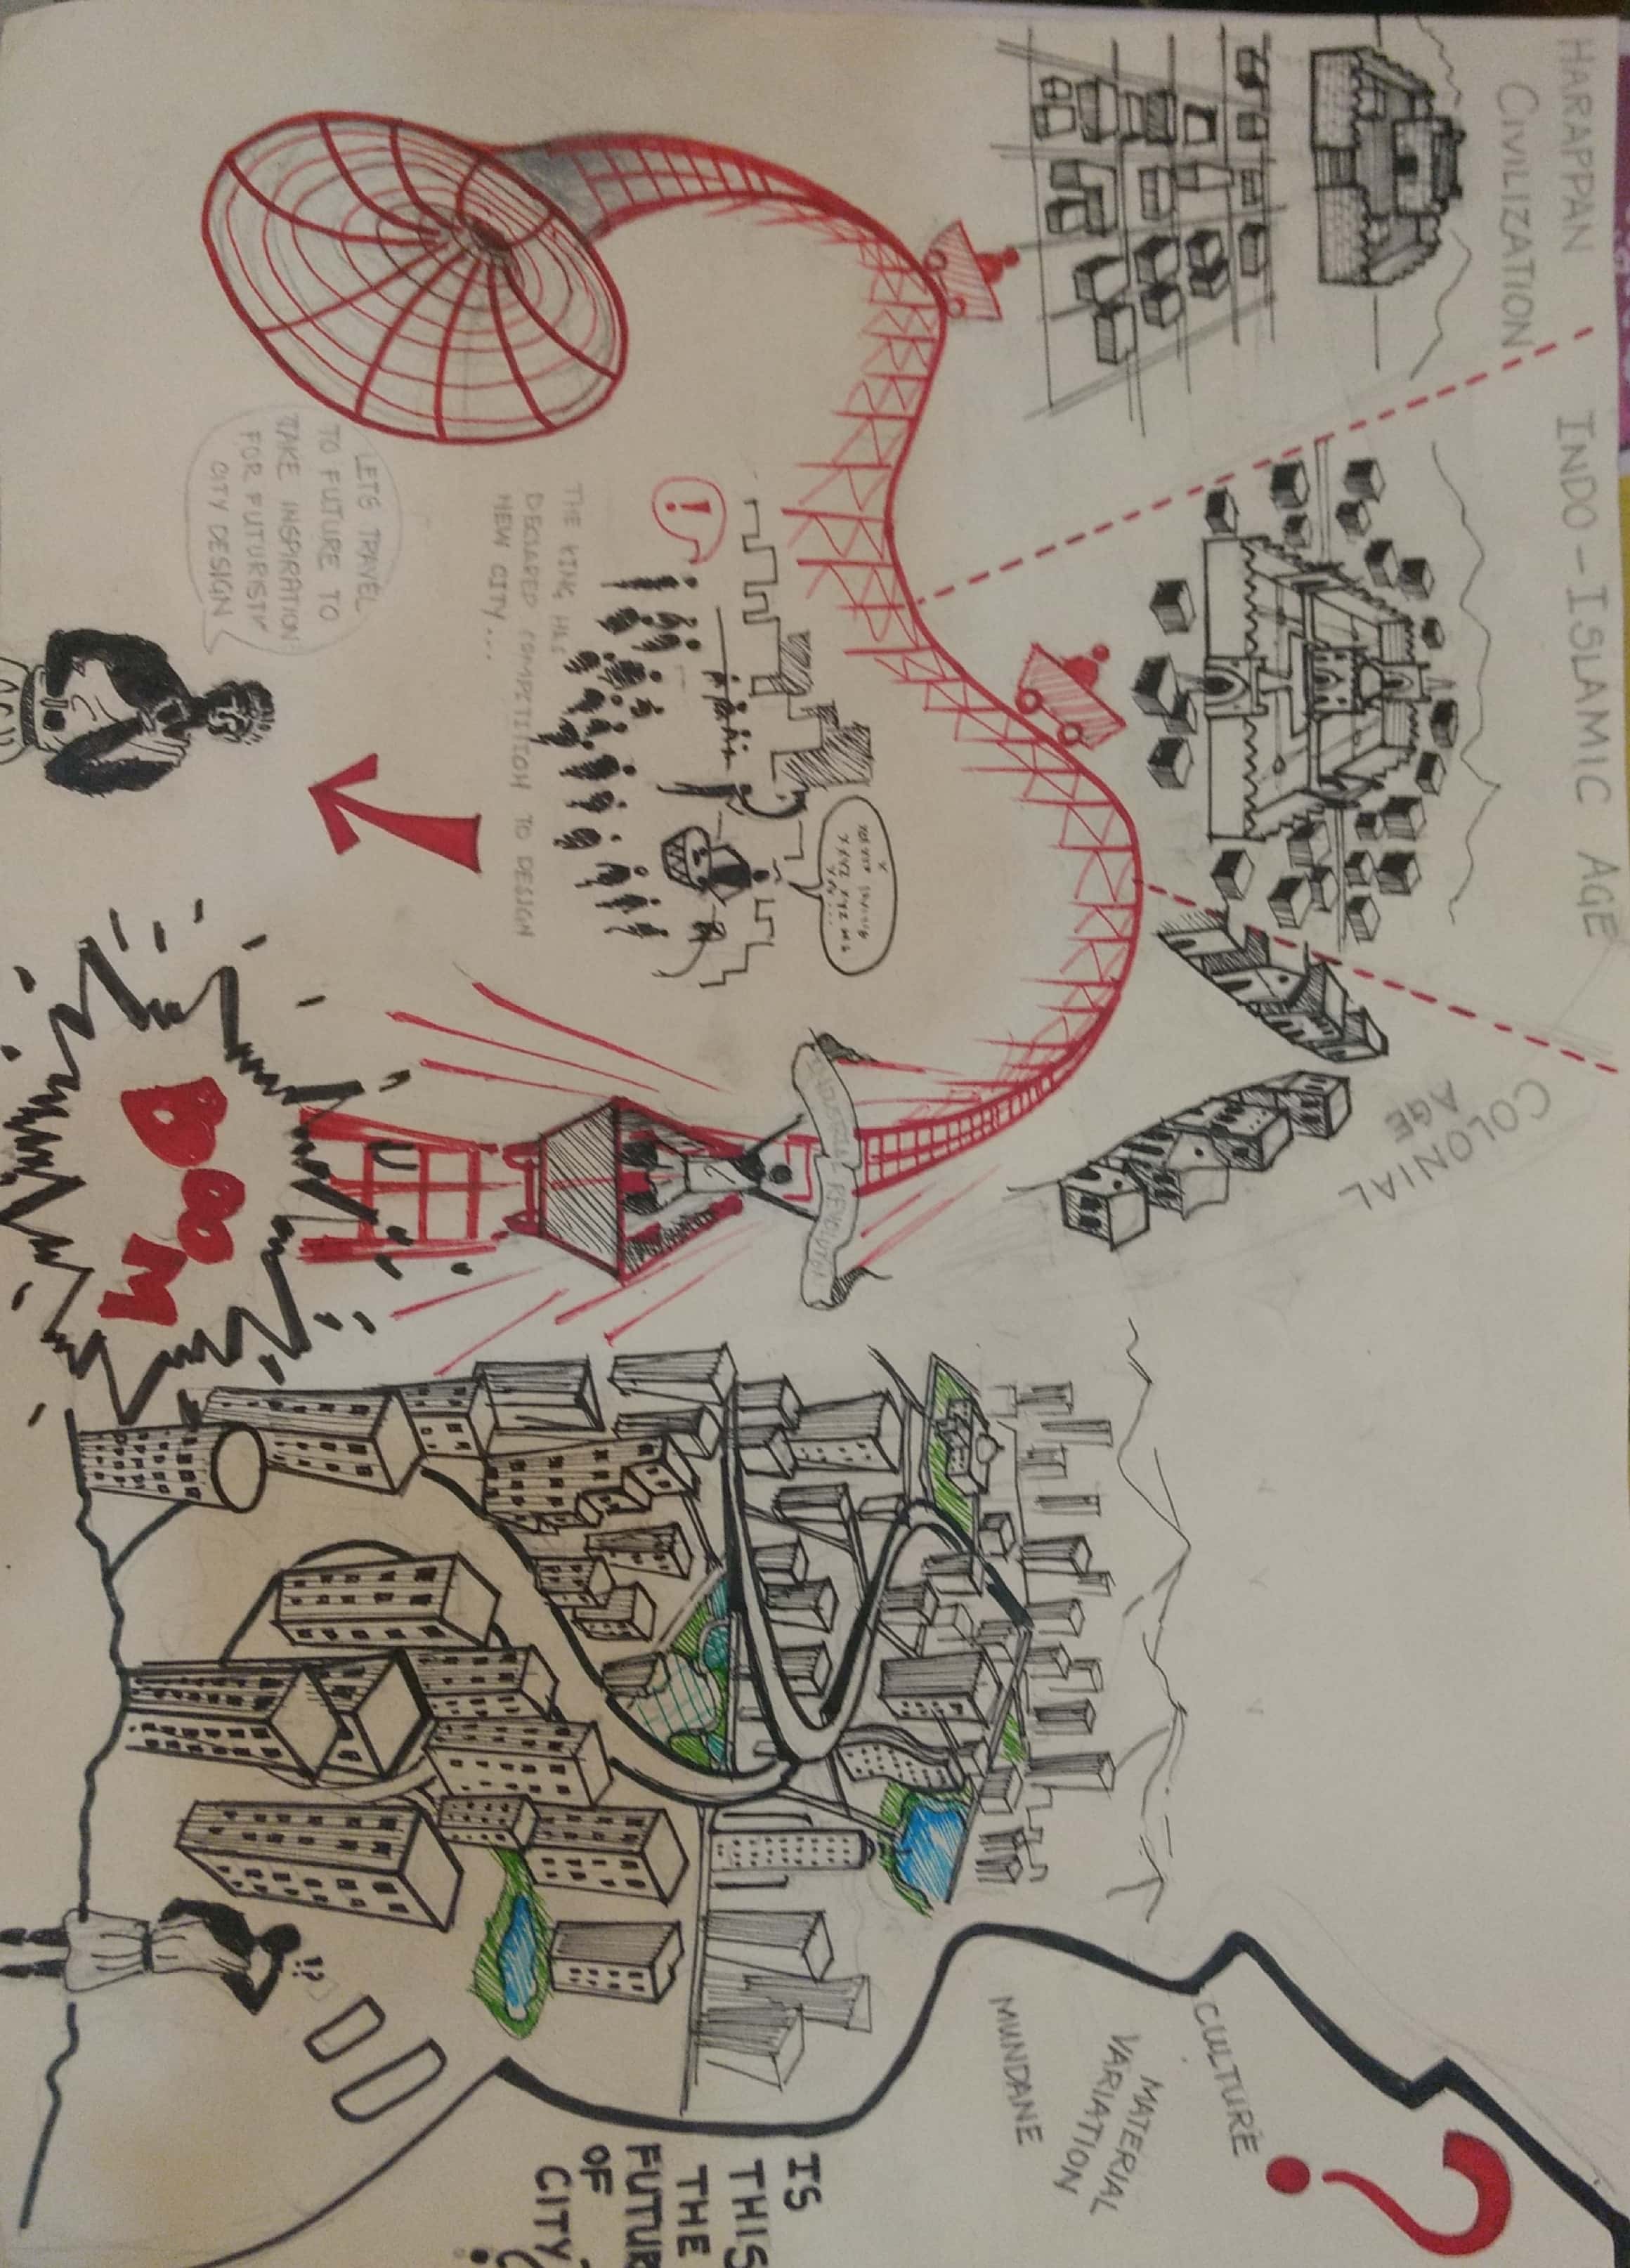 HARAPPAN
CIVILIZATION
INDO-ISLAMIC AGE
COLONIAL
AGE
!
THE KING HAS
DECLARED COMPETITION TO DESIGN
NEW CITY...
LET'S TRAVEL
TO FUTURE TO
TAKE INSPIRATION
FOR FUTURISTIK
CITY DESIGN
INDUSTRIAL REVOLUTION
BOOM
?
CULTURE
MATERIAL
VARIATION
MUNDANE
!?
IS
THIS
THE
FUTUR
OF
CITY